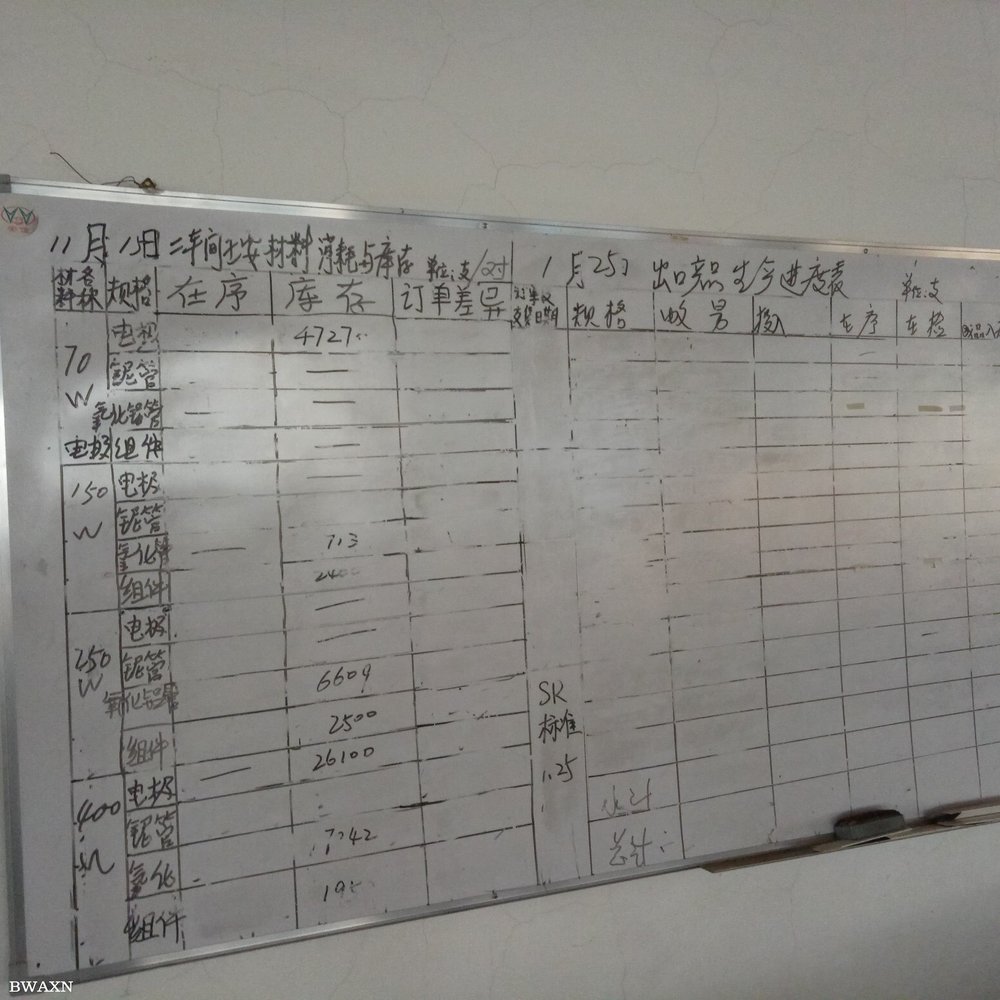 11月15日 二车间主要材料消耗与库存 单位:支/对
材料名称 规格 在序 库存 订单差异
70W 电极 4727
铌管 —
氧化铝管 — —
电极组件 — —
150W 电极
铌管
氧化铝管 — 713
组件
250W 电极 —
铌管 —
氧化铝管 6609
组件 2500
400W 电极 — 26100
铌管
氧化
组件
1月25日 出口产品生产进度表 单位:支
订单及交货日期 规格 收号 投入 在序 在检
SR
标准
1.25
小计
总计:
BWAXN